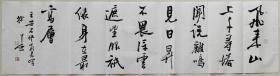 飛來山
上千尋塔
聞說雞鳴
見日昇
不畏浮雲
遮望眼祇
緣身在最
高層